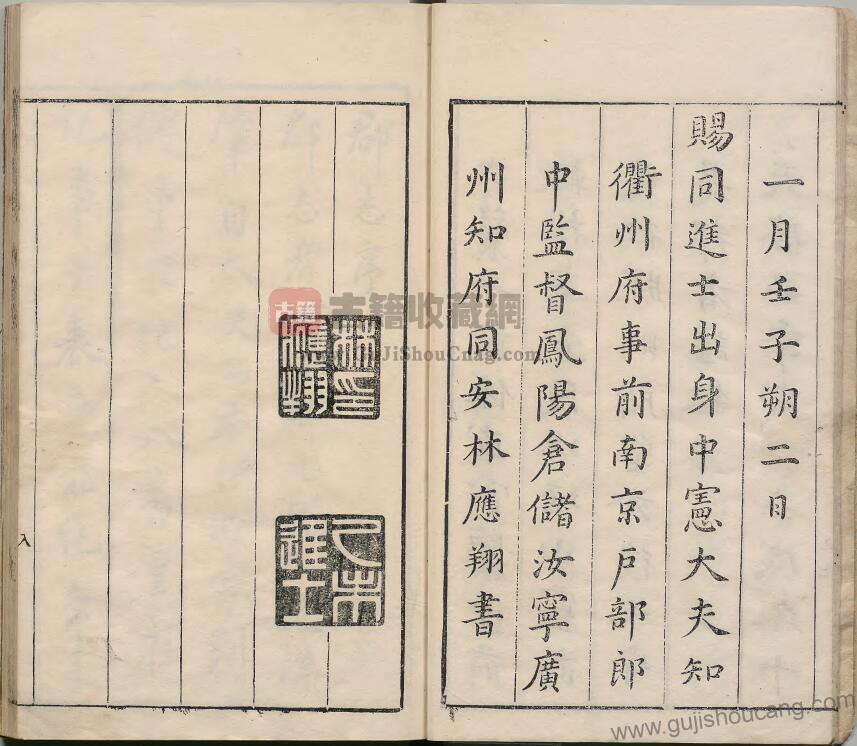 一月壬子朔二日
賜同進士出身中憲大夫知
衢州府事前南京戶部郎
中監督鳳陽倉儲汝寧廣
州知府同安林應翔書
林印
應翔
乙未
進士
八
古籍
古籍收藏網
www.GuJiShouCnag.com
www.gujishoucang.com